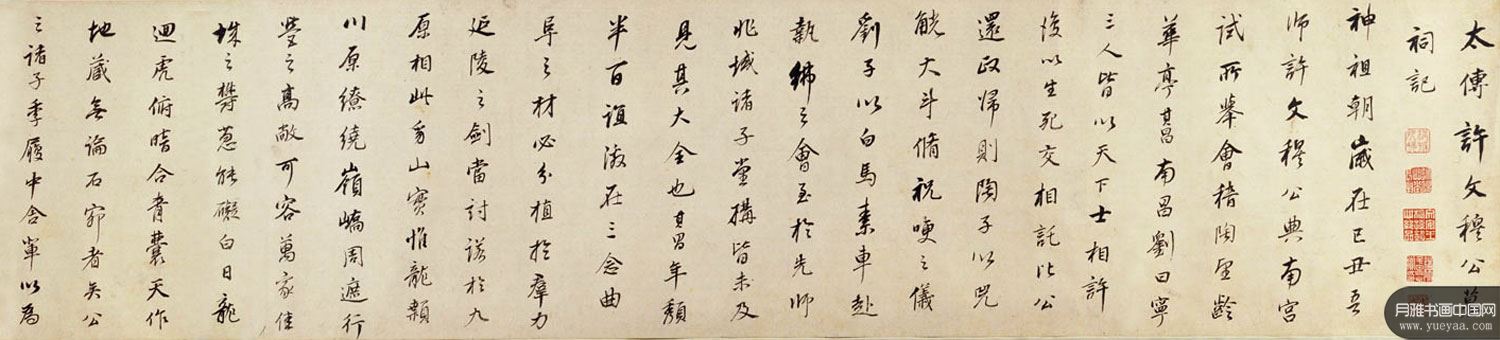 太傅許文穆公墓
祠記
神祖朝歲在己丑吾
師許文穆公典南宮
試所舉會稽陶望齡
華亭其昌南昌劉曰寧
三人皆以天下士相許
後以生死交相託比公
還政歸則陶子以兕
觥大斗脩祝哽之儀
劉子以白馬素車赴
執紼之會至於先師
兆域諸子堂構皆未及
見其大全也其昌年頹
半百誼激在三念曲
阜之材必分植於羣力
延陵之劍當討諾於九
原相此身山實惟龍額
川原繚繞嶺嶠周遮行
塋之高敞可容萬家佳
城之鬱蔥能礙白日龍
迴虎俯暗合青囊天作
地藏無論石槨者矣公
之諸子季履中舍輩以為
月雅书画中国网
www.yueyaa.com